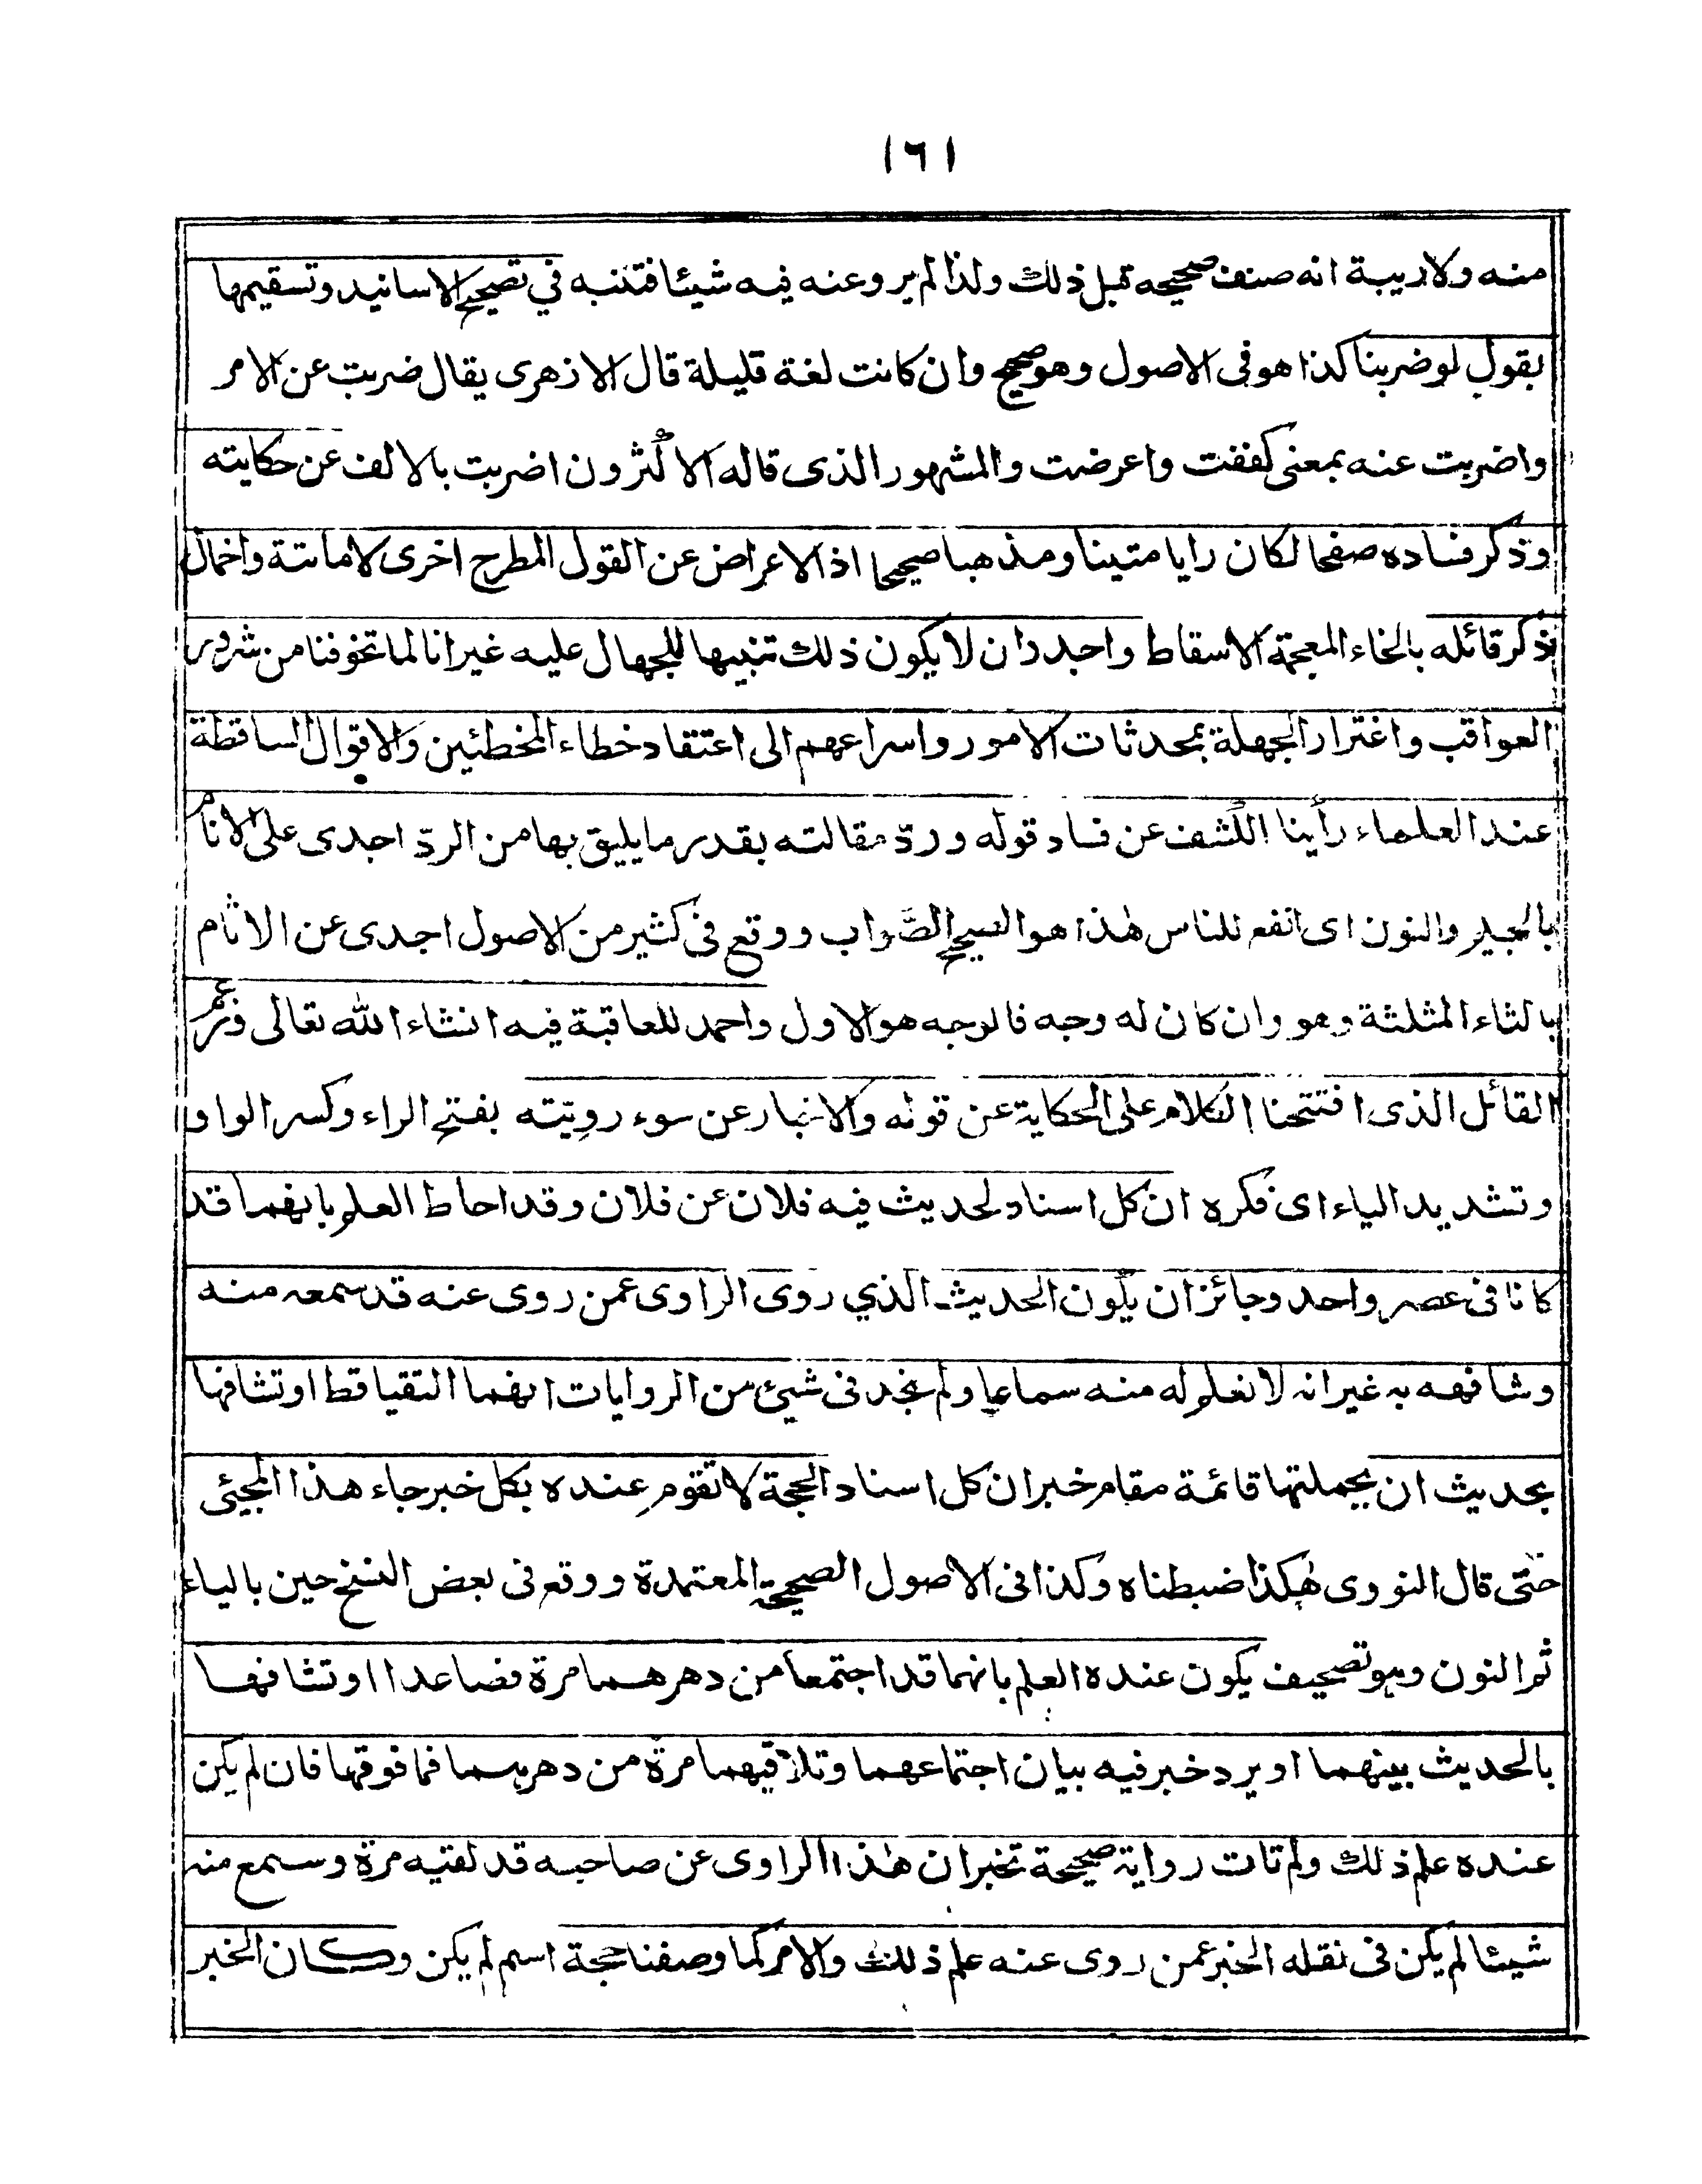 ١٦١
منه ولاريبة انه صنف صحيحه قبل ذلك ولذا لم يرو عنه فيه شيئا فتنبه في تصحيح الاسانيد وتسقيمها
بقول لو ضربنا كذا هو فى الاصول وهو صحيح وان كانت لغة قليلة قال الازهرى يقال ضربت عن الامر
واضربت عنه بمعنى كففت واعرضت والمشهور الذى قاله الاكثرون اضربت بالالف عن حكايته
وذكر فساده صفحا لكان رايا متينا ومذهبا صحيحا اذ الاعراض عن القول المطرح اخرى لاماتتة واخمال
ذكر قائله بالخاء المعجمة الاسقاط واجدر ان لا يكون ذلك تنبيها للجهال عليه غير انا لما تخوفنا من شرور
العواقب واغترار الجهلة بمحدثات الامور واسراعهم الى اعتقاد خطاء المخطئين والاقوال الساقطة
عند العلماء رأينا الكشف عن فساد قوله وردّ مقالته بقدر ما يليق بها من الردّ اجدى على الانام
بالجيم والنون اى انفع للناس هٰذا هو الصحيح الصَّواب ووقع فى كثير من الاصول اجدى عن الاثام
بالثاء المثلثة وهو وان كان له وجه فالوجه هو الاول واحمد للعاقبة فيه انشاء الله تعالى وزعم
القائل الذى افتتحنا الكلام على الحكاية عن قوله والاخبار عن سوء رويّته بفتح الراء وكسر الواو
وتشديد الياء اى فكره ان كل اسناد لحديث فيه فلان عن فلان وقد احاط العلم بانهما قد
كانا فى عصر واحد وجائز ان يكون الحديث الذي روى الراوى عمن روى عنه قد سمعه منه
وشافهه به غير انه لا نعلم له منه سماعا ولم نجد فى شيئ من الروايات انهما التقيا قط او تشافها
بحديث ان بجملتها قائمة مقام خبر ان كل اسناد الحجة لا تقوم عنده بكل خبر جاء هذا المجيئى
حتى قال النووى هٰكذا ضبطناه وكذا فى الاصول الصحيحة المعتمدة ووقع فى بعض النسخ حين بالياء
ثم النون وهو تصحيف يكون عنده العلم بانهما قد اجتمعا من دهرهما مرة فصاعدا او تشافها
بالحديث بينهما او يرد خبر فيه بيان اجتماعهما وتلاقيهما مرة من دهرهما فما فوقها فان لم يكن
عنده علم ذلك ولم تات رواية صحيحة تخبر ان هٰذا الراوى عن صاحبه قد لقيه مرة وسمع منه
شيئا لم يكن فى نقله الخبر عمن روى عنه علم ذلك والامر كما وصفنا حجة اسم لم يكن وكان الخبر